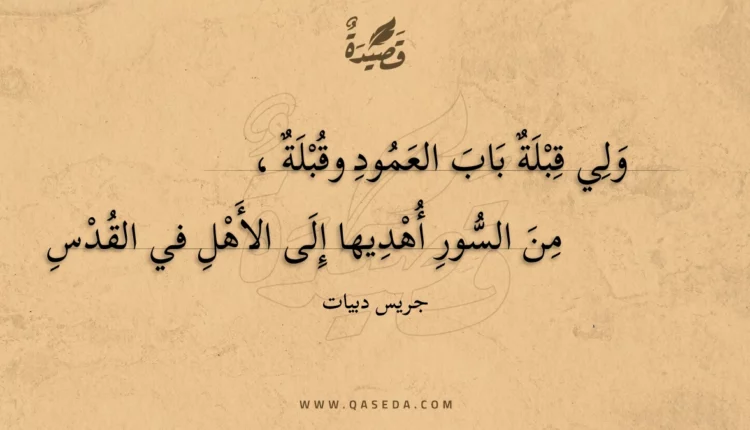 قَصِيْدَةٌ
وَلِي قِبْلَةٌ بَابَ العَمُودِ وقُبْلَةٌ ،
مِنَ السُّورِ أُهْدِيها إِلَى الأَهْلِ في القُدْسِ
جريس دبيات
WWW.QASEDA.COM